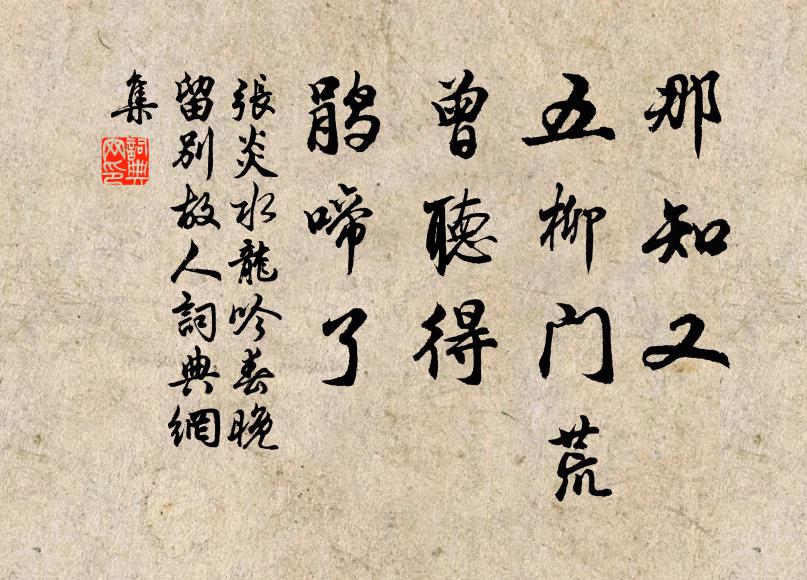 那知又
五柳门荒
曾聽得
鹃啼了
張炎水龍吟春晚
留别故人詞典網
集
詞典
网印